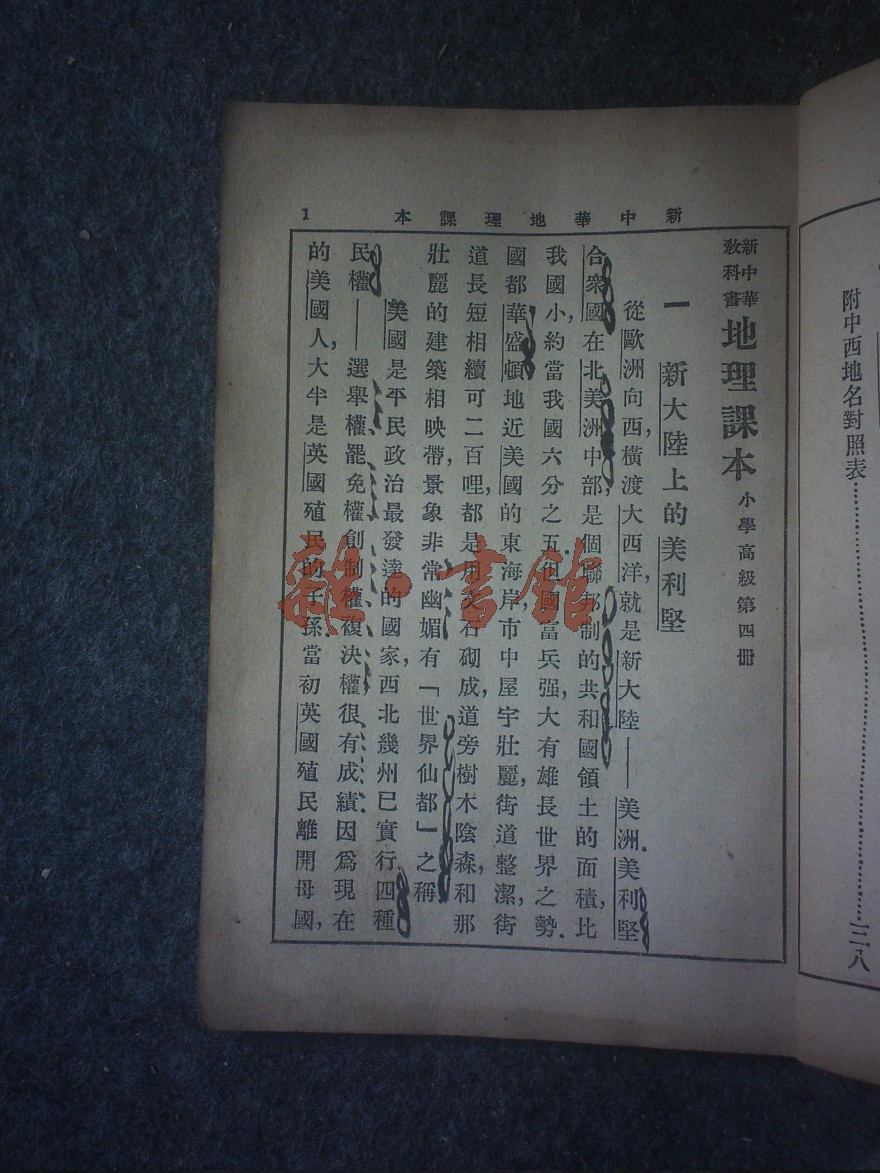 附中西地名對照表……三八
新中華地理課本
1
新中華
教科書
地理課本
小學高級第四册
一 新大陸上的美利堅
從歐洲向西，橫渡大西洋，就是新大陸——美洲．美利堅
合衆國在北美洲中部，是個聯邦制的共和國領土的面積，比
我國小，約當我國六分之五．但國富兵强，大有雄長世界之勢．
國都華盛頓地近美國的東海岸，市中屋宇壯麗，街道整潔，街
道長短相續可二百哩，都是用美石砌成，道旁樹木陰森，和那
壯麗的建築相映帶，景象非常幽媚有「世界仙都」之稱．
美國是平民政治最發達的國家，西北幾州已實行四種
民權——選舉權、罷免權、創制權、複決權，很有成績．因爲現在
的美國人，大半是英國殖民的子孫．當初英國殖民離開母國，
雜·書館